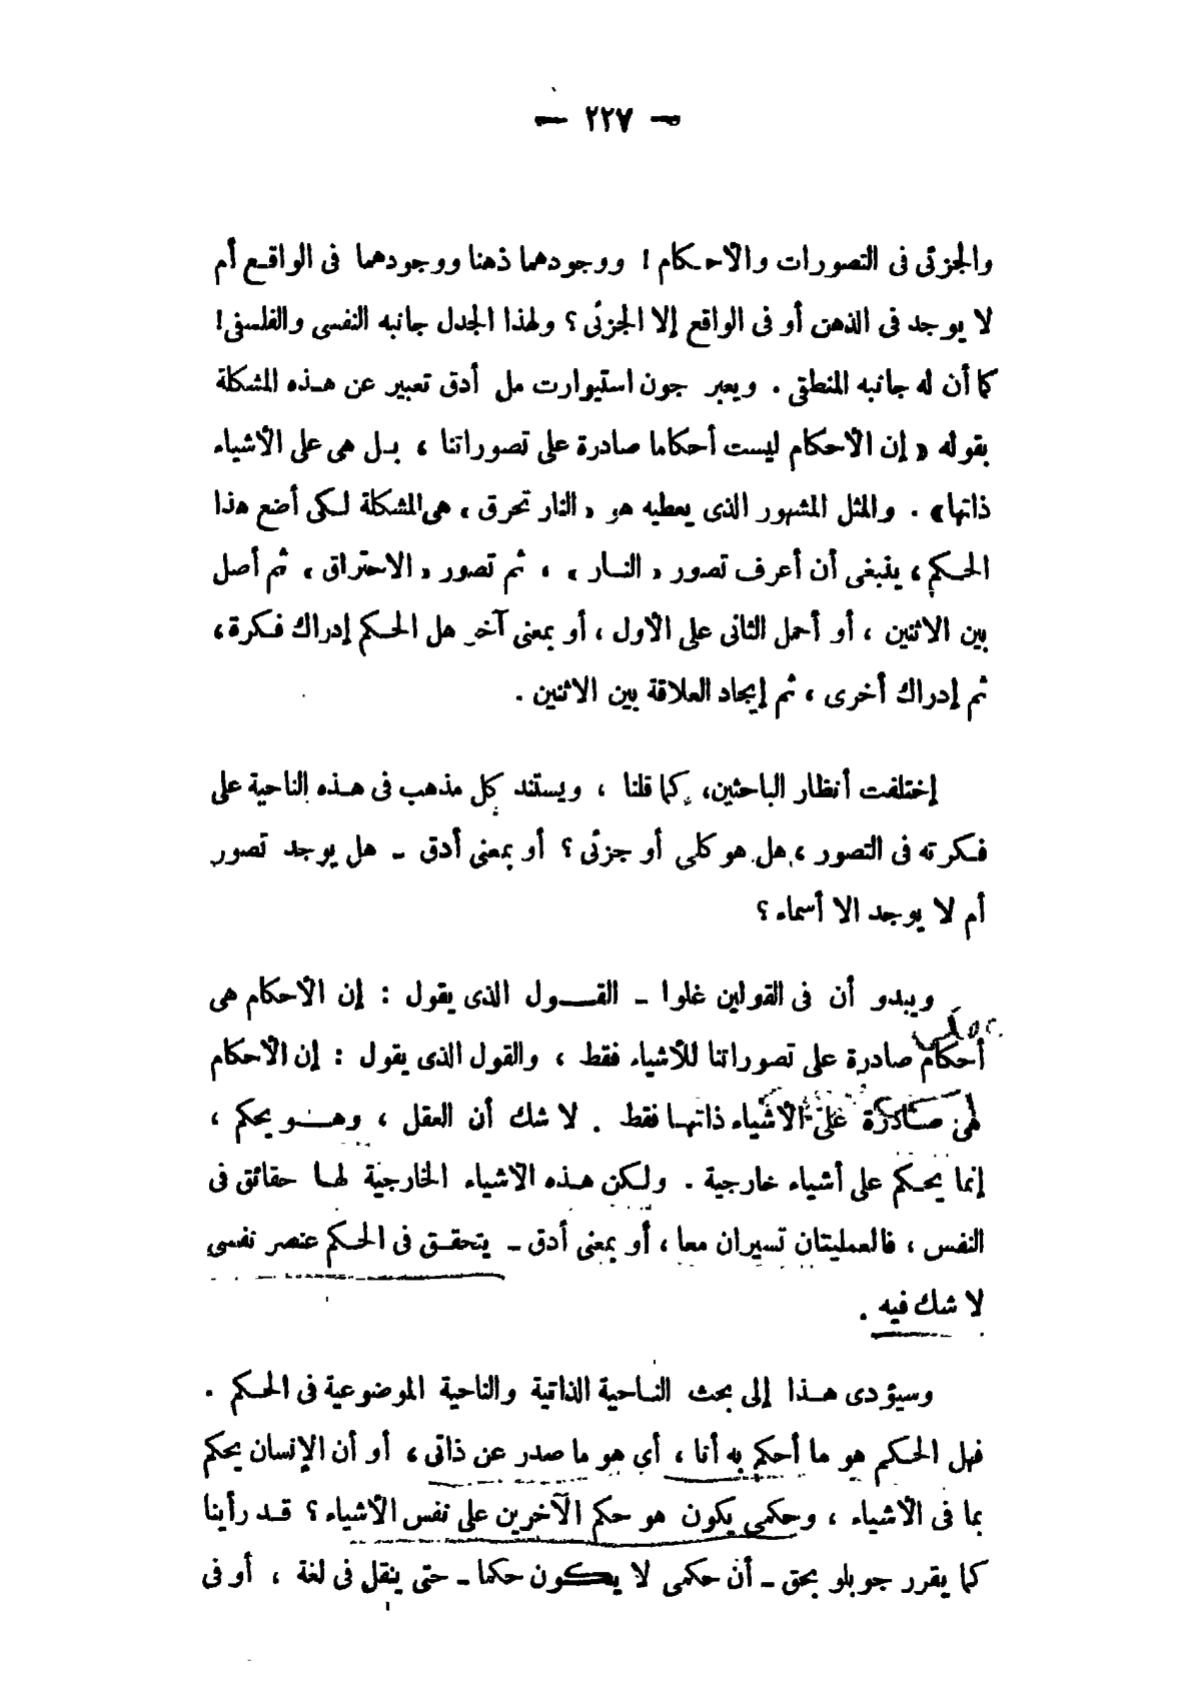 — ٢٢٧ —
والجزئى فى التصورات والأحكام ! ووجودهما ذهنا ووجودهما فى الواقع أم
لا يوجد فى الذهن أو فى الواقع إلا الجزئى ؟ ولهذا الجدل جانبه النفسى والفلسفى !
كما أن له جانبه المنطقى . ويعبر جون استيوارت مل أدق تعبير عن هذه المشكلة
بقوله « إن الأحكام ليست أحكاما صادرة على تصوراتنا ، بل هى على الأشياء
ذاتها» . والمثل المشهور الذى يعطيه هو « النار تحرق » هى المشكلة لكى أضع هذا
الحكم ، ينبغى أن أعرف تصور « النار » ، ثم تصور « الاحتراق » ثم أصل
بين الاثنين ، أو أحمل الثانى على الأول ، أو بمعنى آخر هل الحكم إدراك فكرة ،
ثم إدراك أخرى ، ثم إيجاد العلاقة بين الاثنين .
إختلفت أنظار الباحثين، كما قلنا ، ويستند كل مذهب فى هذه الناحية على
فكرته فى التصور ، هل هو كلى أو جزئى ؟ أو بمعنى أدق - هل يوجد تصور
أم لا يوجد الا أسماء ؟
ويبدو أن فى القولين غلوا - القول الذى يقول : إن الأحكام هى
أحكام صادرة على تصوراتنا للأشياء فقط ، والقول الذى يقول : إن الأحكام
هى صادرة على الأشياء ذاتها فقط . لا شك أن العقل ، وهو يحكم ،
إنما يحكم على أشياء خارجية . ولكن هذه الأشياء الخارجية لها حقائق فى
النفس ، فالعمليتان تسيران معا ، أو بمعنى أدق - يتحقق فى الحكم عنصر نفسى
لا شك فيه .
وسيؤدى هذا إلى بحث الناحية الذاتية والناحية الموضوعية فى الحكم .
فهل الحكم هو ما أحكم به أنا ، أي هو ما صدر عن ذاتى ، أو أن الإنسان يحكم
بما فى الأشياء ، وحكمى يكون هو حكم الآخرين على نفس الأشياء ؟ قد رأينا
كما يقرر جوبلو بحق - أن حكمى لا يكون حكما - حتى ينقل فى لغة ، أو فى